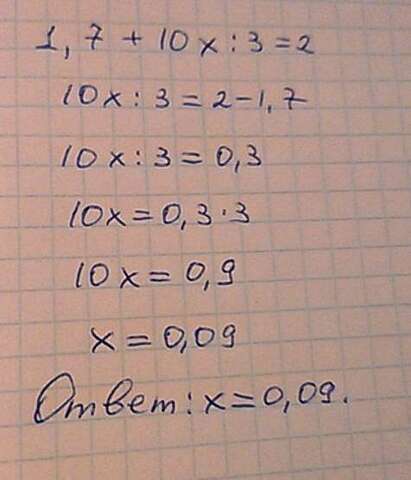 1,7 + 10x : 3 = 2
10x : 3 = 2 - 1,7
10x : 3 = 0,3
10x = 0,3 · 3
10x = 0,9
x = 0,09
Ответ: x = 0,09.